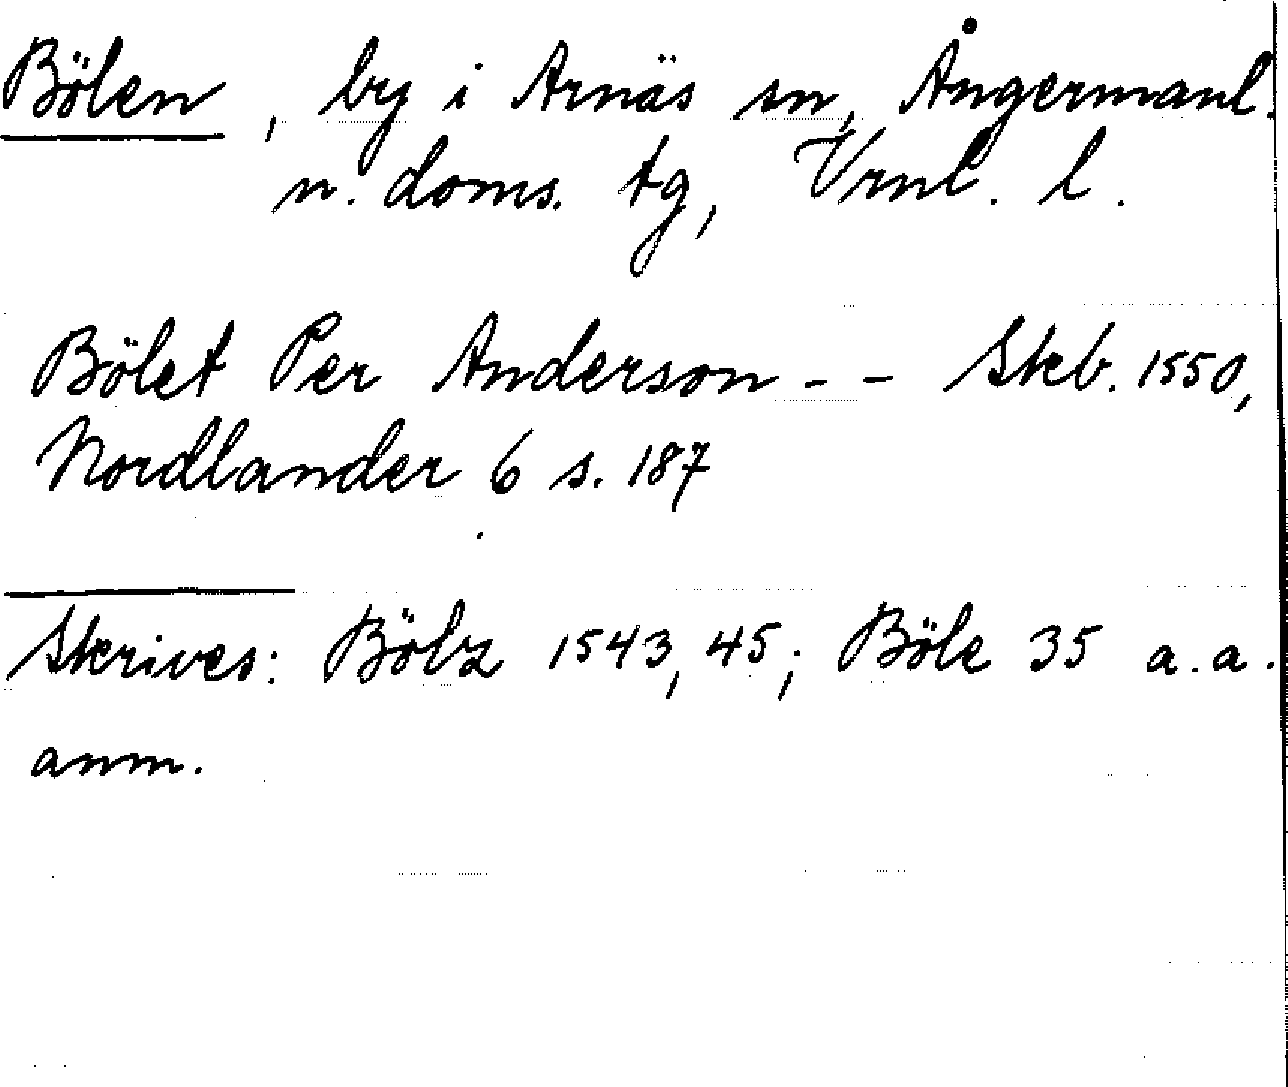 Bölen, by i Arnäs sn, Ångermanl.
n. doms. tg, Vrnl. l.
Bölet Per Anderson - - Skb. 1550,
Nordlander 6 s. 187
Skrives: Bölz 1543, 45; Böle 35 a.a.
anm.